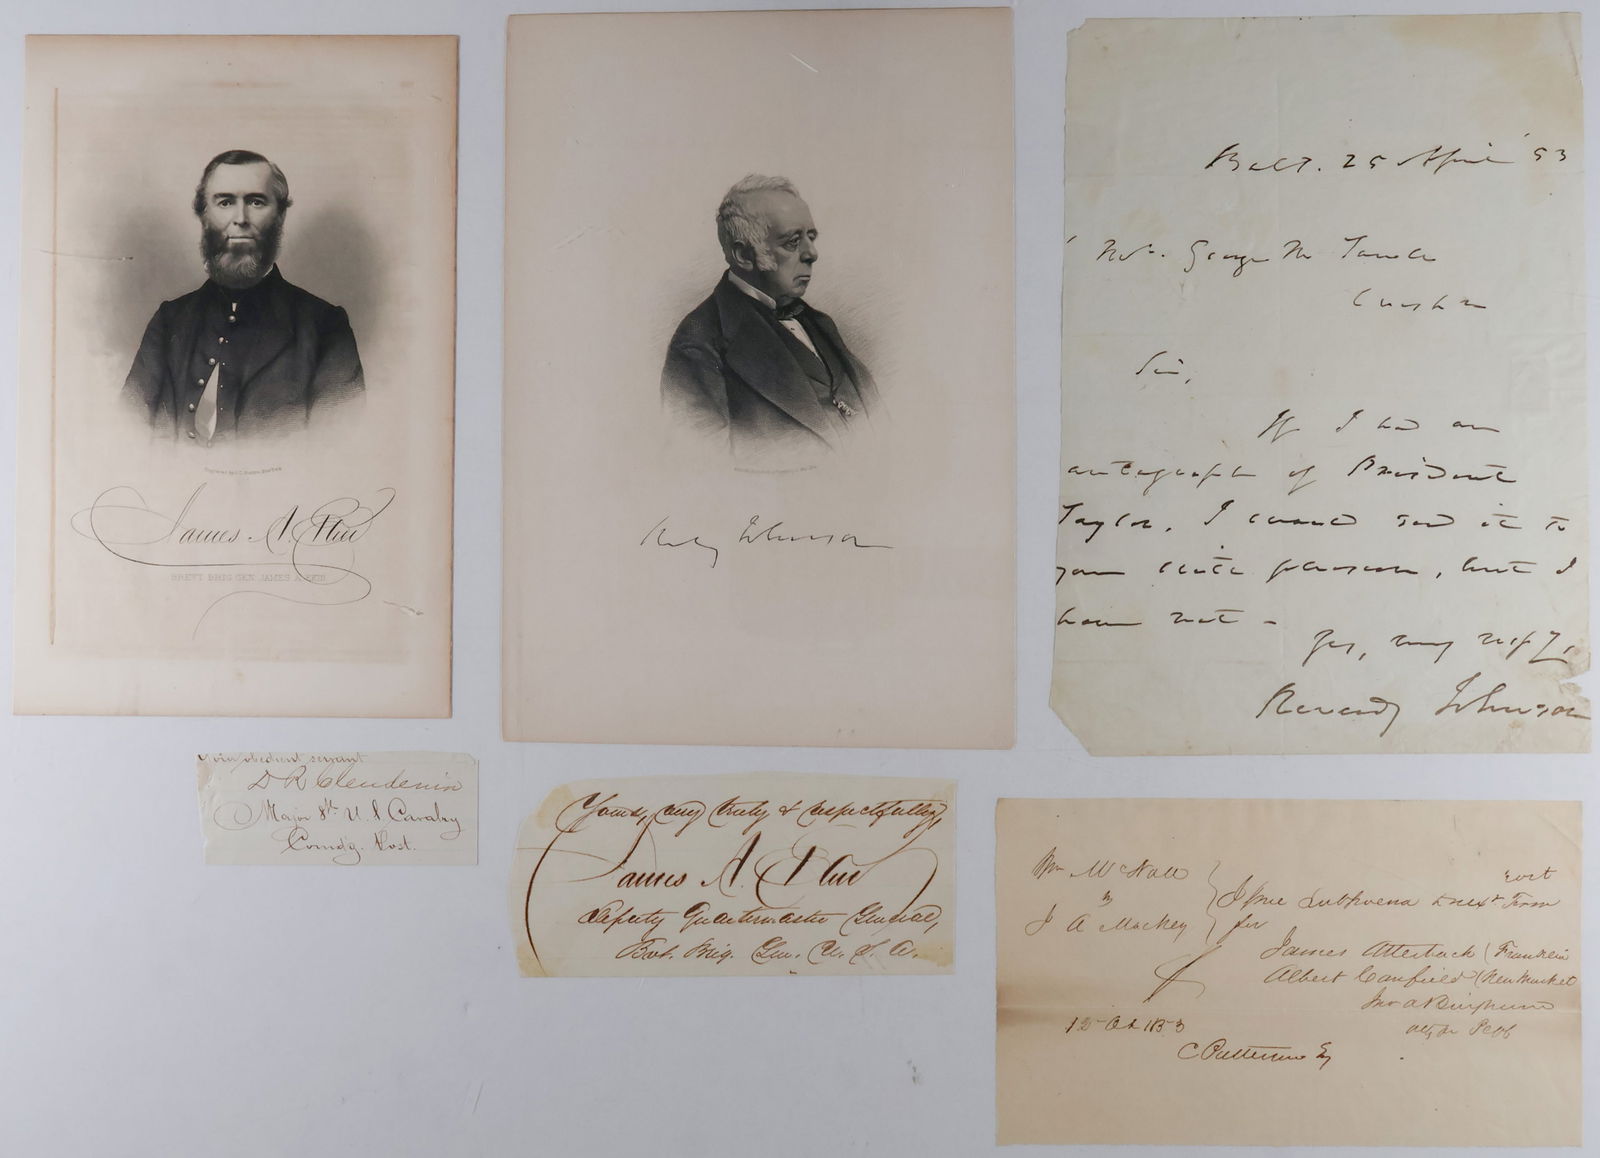 James A. Ekin
BREVT BRIG GEN. JAMES A. EKIN
Reverdy Johnson
Balt. 25 April '53
George M
Sir,
If I had an
autograph of President
Taylor, I would send it to
you with pleasure, but I
have not -
Yrs, very respy,
Reverdy Johnson
Your obedient servant
D R Clendenin
Major 8th U. S Cavalry
Comdg. Post.
Yours, very truly & respectfully,
James A. Ekin
Deputy Quartermaster General,
Bvt. Brig. Gen. U. S. A.
Wm McNall
vs
J A Mackey
Issue Subpoena next Term
for
James Atterback (Franklin
Albert Canfield (New Market
Jno A Bingham
atty for Plff
12 Oct 1853
C Patterson